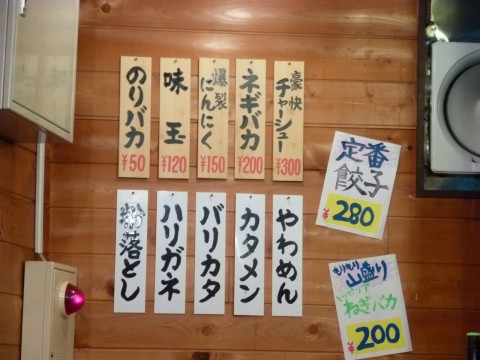 豪快
チャーシュー
¥300
ネギバカ
¥200
爆裂
にんにく
¥150
味玉
¥120
のりバカ
¥50
やわめん
カタメン
バリカタ
ハリガネ
粉落とし
定番
餃子
¥280
もりもり山盛り
ねぎバカ
¥200